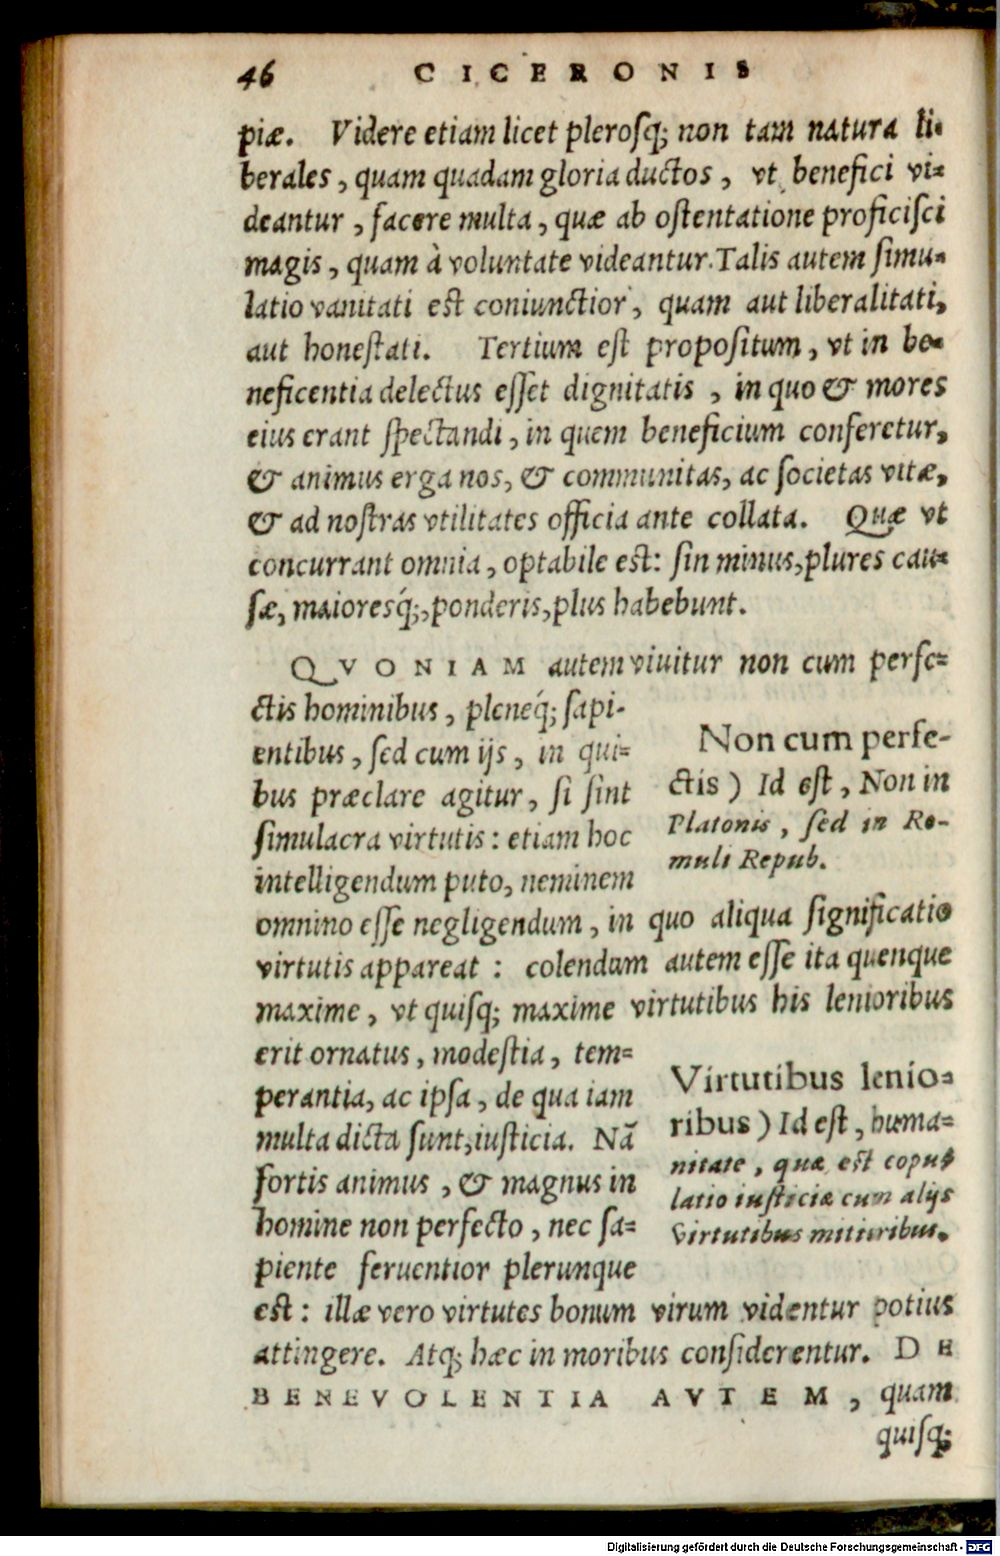 46 CICERONIS
piæ. Videre etiam licet plerosq; non tam natura li-
berales, quam quadam gloria ductos, vt benefici vi-
deantur, facere multa, quæ ab ostentatione proficisci
magis, quam à voluntate videantur. Talis autem simu-
latio vanitati est coniunctior, quam aut liberalitati,
aut honestati. Tertium est propositum, vt in be-
neficentia delectus esset dignitatis, in quo & mores
eius erant spectandi, in quem beneficium conferetur,
& animus erga nos, & communitas, ac societas vitæ,
& ad nostras vtilitates officia ante collata. Quæ vt
concurrant omnia, optabile est: sin minus, plures cau-
sæ, maioresq́;, ponderis, plus habebunt.
QVONIAM autem viuitur non cum perfe-
ctis hominibus, pleneq́; sapi-
entibus, sed cum ijs, in qui-
bus præclare agitur, si sint
simulacra virtutis: etiam hoc
intelligendum puto, neminem
Non cum perfe-
ctis) Id est, Non in
Platonis, sed in Ro-
muli Repub.
omnino esse negligendum, in quo aliqua significatio
virtutis appareat: colendum autem esse ita quenque
maxime, vt quisq; maxime virtutibus his lenioribus
erit ornatus, modestia, tem-
perantia, ac ipsa, de qua iam
multa dicta sunt, iusticia. Nã
fortis animus, & magnus in
homine non perfecto, nec sa-
piente feruentior plerunque
Virtutibus lenio-
ribus) Id est, huma-
nitate, quæ est copu-
latio iusticiæ cum alijs
virtutibus mitioribus.
est: illæ vero virtutes bonum virum videntur potius
attingere. Atq; hæc in moribus considerentur. DE
BENEVOLENTIA AVTEM, quam
quisq;
Digitalisierung gefördert durch die Deutsche Forschungsgemeinschaft - DFG